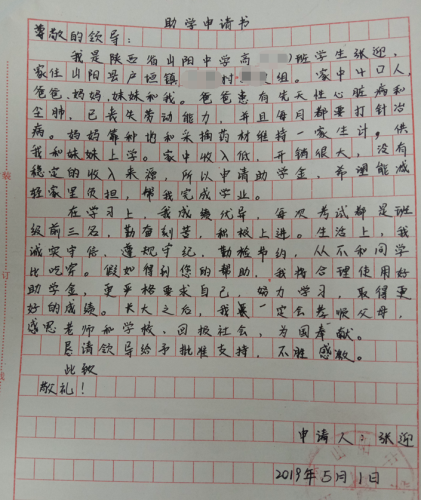 助学申请书
尊敬的领导：
我是陕西省山阳中学高 班学生张迎，
家住山阳县户垣镇 村 组。家中4口人，
爸爸、妈妈、妹妹和我。爸爸患有先天性心脏病和
尘肺，已丧失劳动能力，并且每月都要打针治
病。妈妈靠种地和采摘药材维持一家生计，供
我和妹妹上学。家中收入低，开销很大，没有
稳定的收入来源，所以申请助学金，希望能减
轻家里负担，帮我完成学业。
在学习上，我成绩优异，每次考试都是班
级前三名，勤奋刻苦，积极上进。生活上，我
诚实守信，遵规守纪，勤俭节约，从不和同学
比吃穿。假如得到您的帮助，我将合理使用好
助学金，更严格要求自己，努力学习，取得更
好的成绩。长大之后，我 一定会孝顺父母，
感恩老师和学校，回报社会，为国奉献。
恳请领导给予批准支持，不胜感激。
此致
敬礼！
申请人：张迎
2019年5月1日